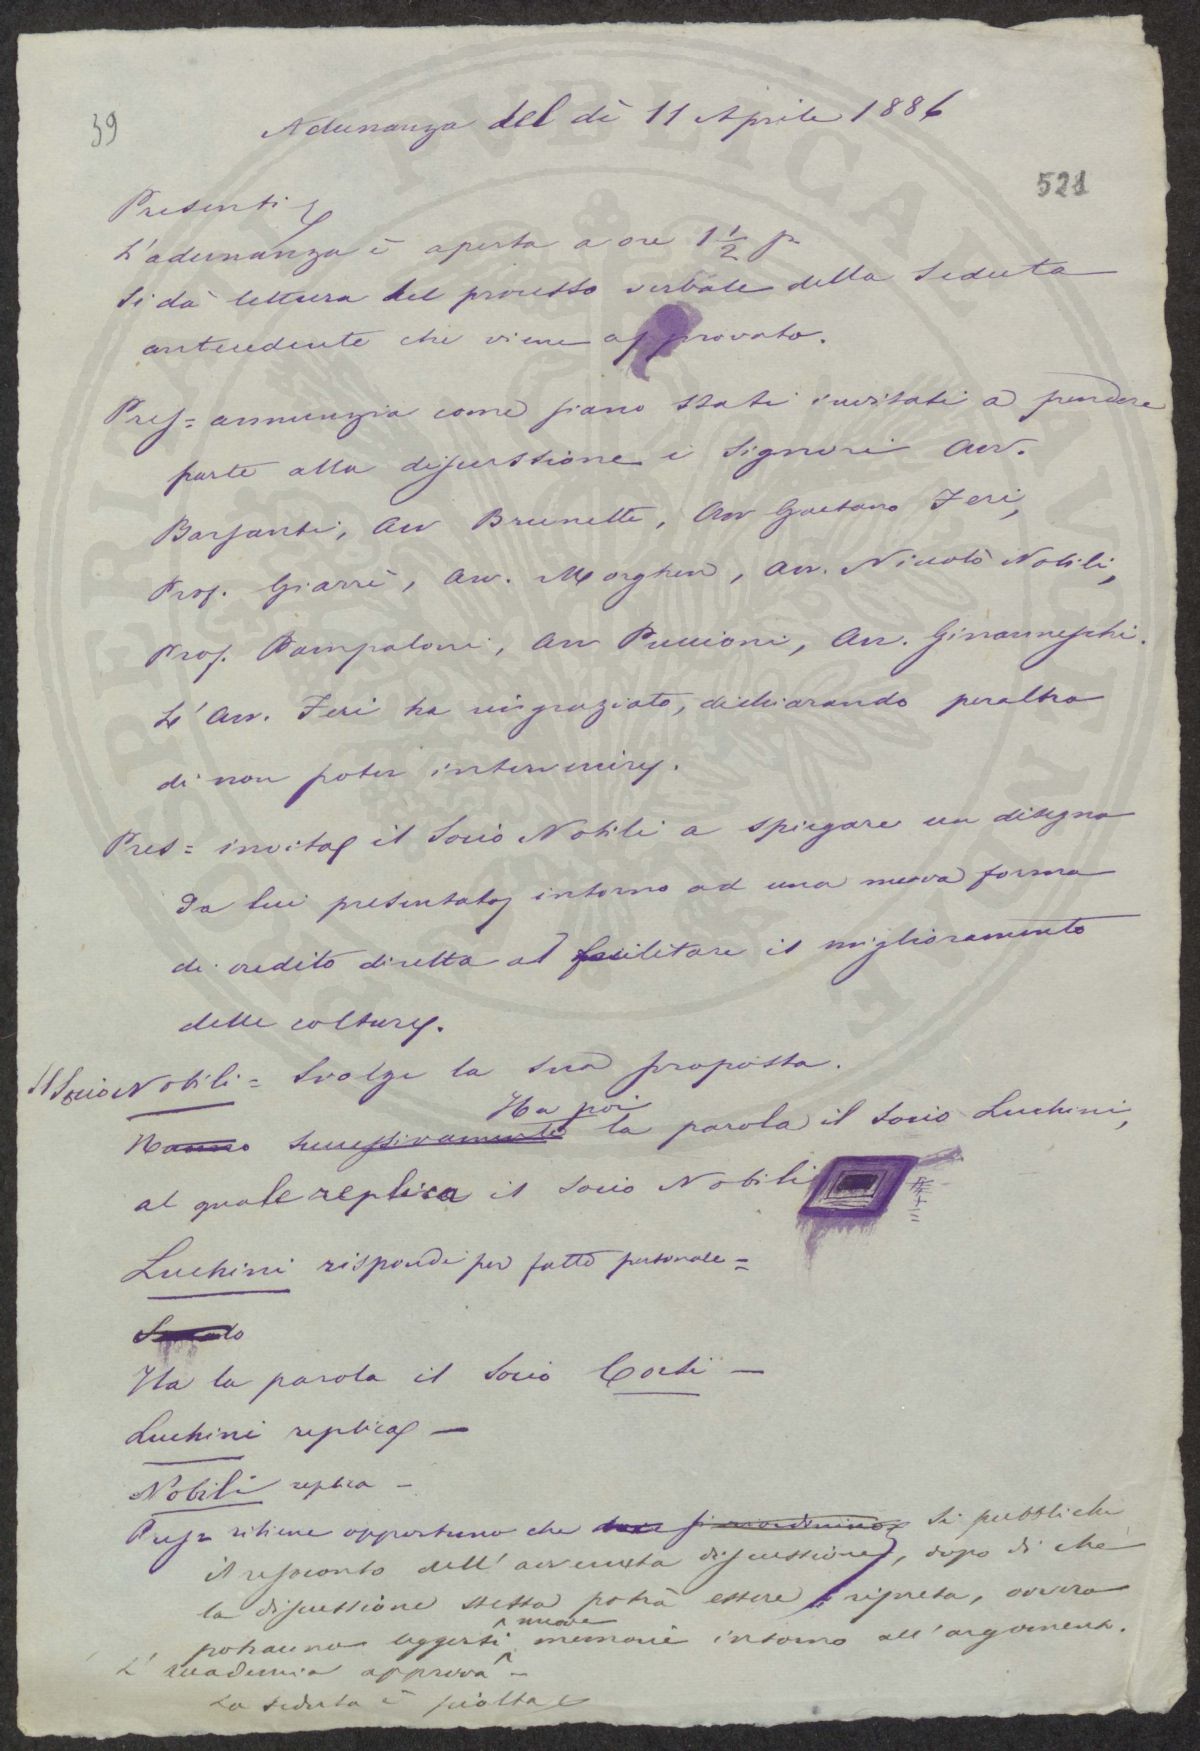 39
Adunanza del dì 11 Aprile 1886
521
Presenti
L'adunanza è aperta a ore 1 1/2 p
Si dà lettura del processo verbale della seduta
antecedente che viene approvato.
Pres= annunzia come siano stati invitati a prendere
parte alla discussione i Signori Avv.
Barsanti, Avv Brunetti, Avv Gaetano Feri,
Prof. Giarrè, Avv. Morghen, Avv. Niccolò Nobili,
Prof. Pampaloni, Avv Puccioni, Avv. Ginanneschi.
L'Avv. Feri ha ringraziato, dichiarando peraltro
di non poter intervenire.
Pres= invita il Socio Nobili a spiegare un disegno
da lui presentato intorno ad una nuova forma
di credito diretta a facilitare il miglioramento
delle colture.
Il Socio Nobili = Svolge la sua proposta.
Ha poi
Hanno successivamente la parola il Socio Luchini,
al quale replica il Socio Nobili
Luchini risponde per fatto personale=
Ha la parola il Socio Corsi —
Luchini replica —
Nobili replica -
Pres= ritiene opportuno che si riordinino si pubblichi
il resoconto dell'avvenuta discussione, dopo di che
la discussione stessa potrà essere ripresa, ovvero
nuove
potranno leggersi memorie intorno all'argomento.
L'accademia approva -
La seduta è sciolta
PROSPERITATI PVBLICAE AVGENDAE